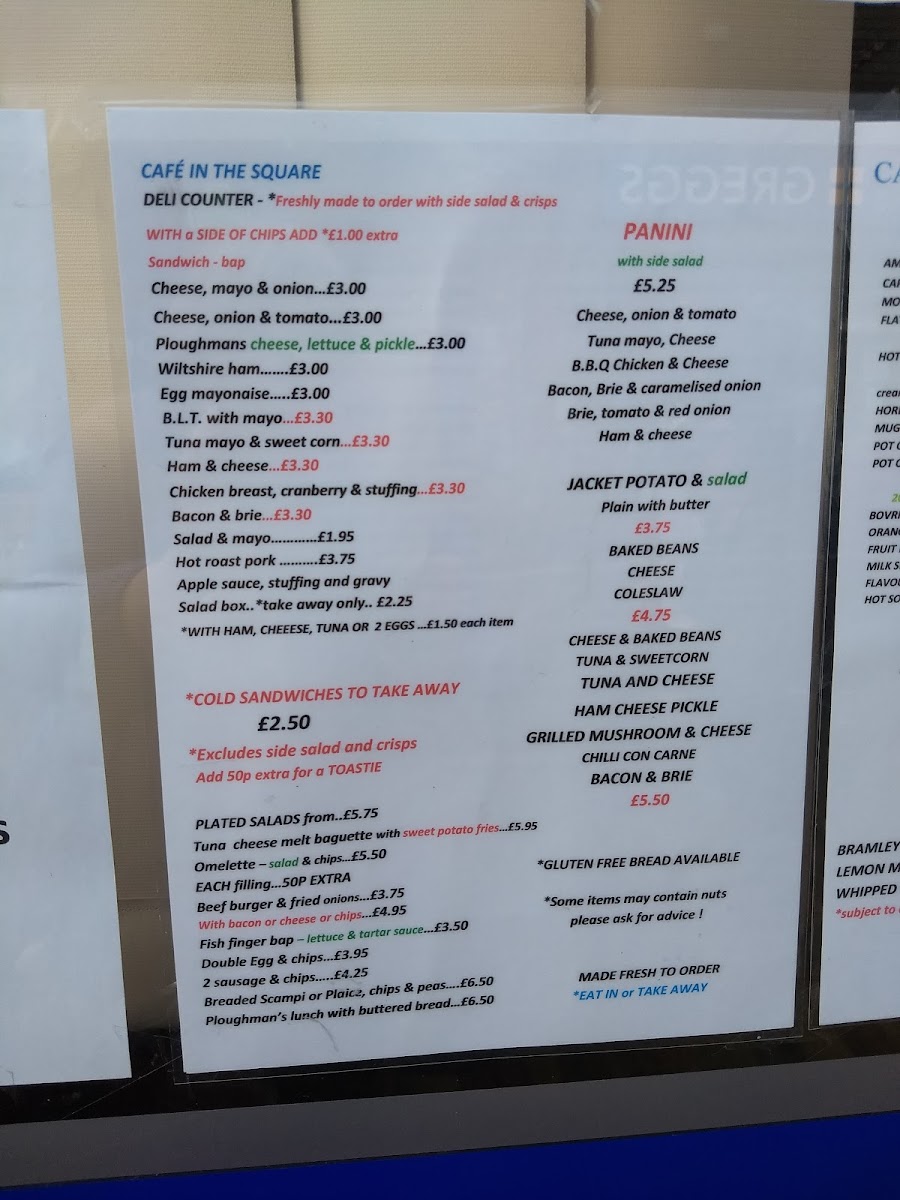 CAFÉ IN THE SQUARE
DELI COUNTER - *Freshly made to order with side salad & crisps
WITH a SIDE OF CHIPS ADD *£1.00 extra
Sandwich - bap
Cheese, mayo & onion...£3.00
Cheese, onion & tomato...£3.00
Ploughmans cheese, lettuce & pickle...£3.00
Wiltshire ham.......£3.00
Egg mayonaise.....£3.00
B.L.T. with mayo...£3.30
Tuna mayo & sweet corn...£3.30
Ham & cheese...£3.30
Chicken breast, cranberry & stuffing...£3.30
Bacon & brie...£3.30
Salad & mayo............£1.95
Hot roast pork ..........£3.75
Apple sauce, stuffing and gravy
Salad box..*take away only.. £2.25
*WITH HAM, CHEEESE, TUNA OR 2 EGGS ...£1.50 each item
*COLD SANDWICHES TO TAKE AWAY
£2.50
*Excludes side salad and crisps
Add 50p extra for a TOASTIE
PLATED SALADS from..£5.75
Tuna cheese melt baguette with sweet potato fries...£5.95
Omelette – salad & chips...£5.50
EACH filling...50P EXTRA
Beef burger & fried onions...£3.75
With bacon or cheese or chips...£4.95
Fish finger bap – lettuce & tartar sauce...£3.50
Double Egg & chips...£3.95
2 sausage & chips.....£4.25
Breaded Scampi or Plaice, chips & peas....£6.50
Ploughman's lunch with buttered bread...£6.50
PANINI
with side salad
£5.25
Cheese, onion & tomato
Tuna mayo, Cheese
B.B.Q Chicken & Cheese
Bacon, Brie & caramelised onion
Brie, tomato & red onion
Ham & cheese
JACKET POTATO & salad
Plain with butter
£3.75
BAKED BEANS
CHEESE
COLESLAW
£4.75
CHEESE & BAKED BEANS
TUNA & SWEETCORN
TUNA AND CHEESE
HAM CHEESE PICKLE
GRILLED MUSHROOM & CHEESE
CHILLI CON CARNE
BACON & BRIE
£5.50
*GLUTEN FREE BREAD AVAILABLE
*Some items may contain nuts
please ask for advice !
MADE FRESH TO ORDER
*EAT IN or TAKE AWAY
GREGGS
HOT
MUG
POT
POT
FRUIT
HOT
BRAMLEY
LEMON
WHIPPED
*subject to